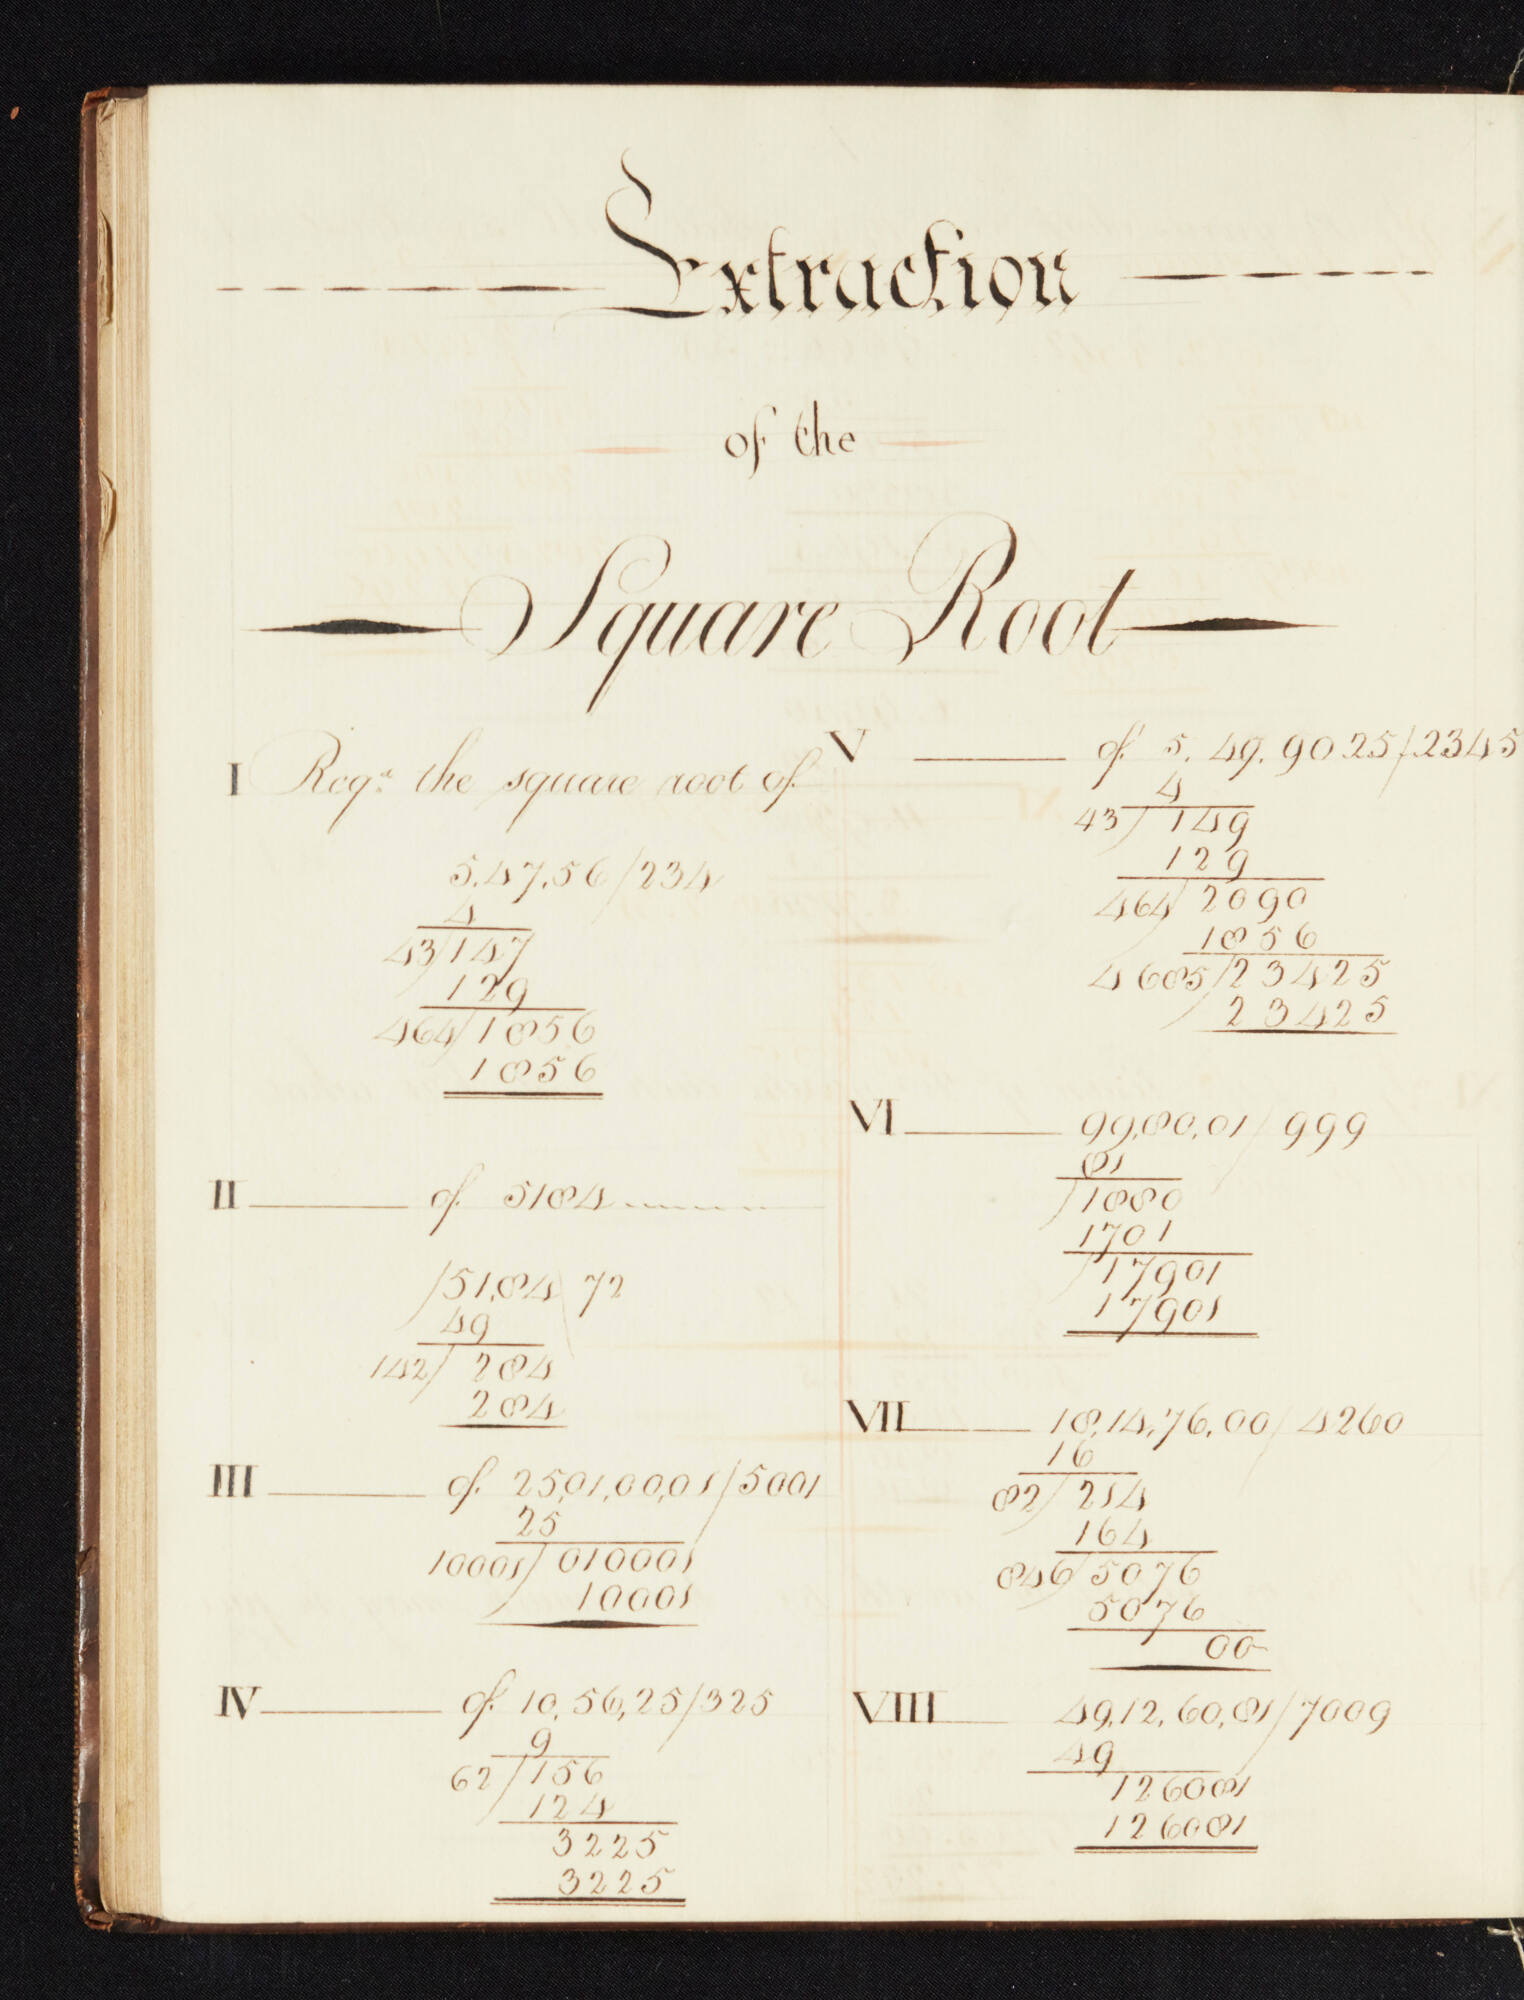 Extraction
of the
Square Root
I Reqd. the square root of
5.47.56/234
4
43/147
129
464/1856
1856
II of 5184
/51,84/72
49
142/284
284
III of 25,01,00,01/5001
25
10001/010001
10001
IV of 10,56,25/325
9
62/156
124
3225
3225
V of 5.49.9025/2345
4
43/149
129
464/2090
1856
4685/23425
23425
VI 99,80,01/999
81
/1880
1701
/17901
17901
VII 18,14,76,00/4260
16
82/214
164
846/5076
5076
00
VIII 49,12,60,81/7009
49
126081
126081